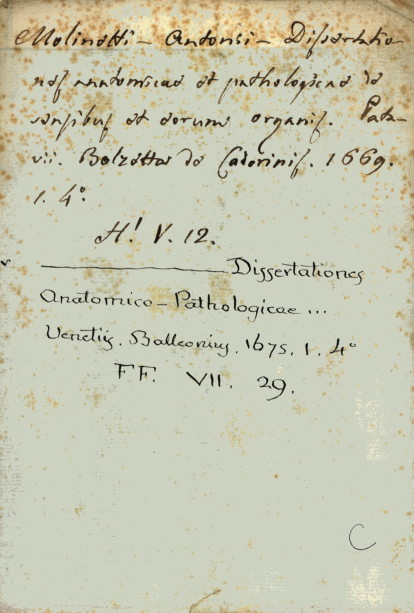 Molinetti - Antonii - Dissertatio-
nes anatomicae et pathologicae de
sensibus et eorum organis. Pata-
vii. Bolzetta de Cadorinis. 1669.
1. 4°
H! V. 12.
Dissertationes
Anatomico-Pathologicae ...
Venetiis. Balleonius. 1675. 1. 4°
FF. VII. 29.
C